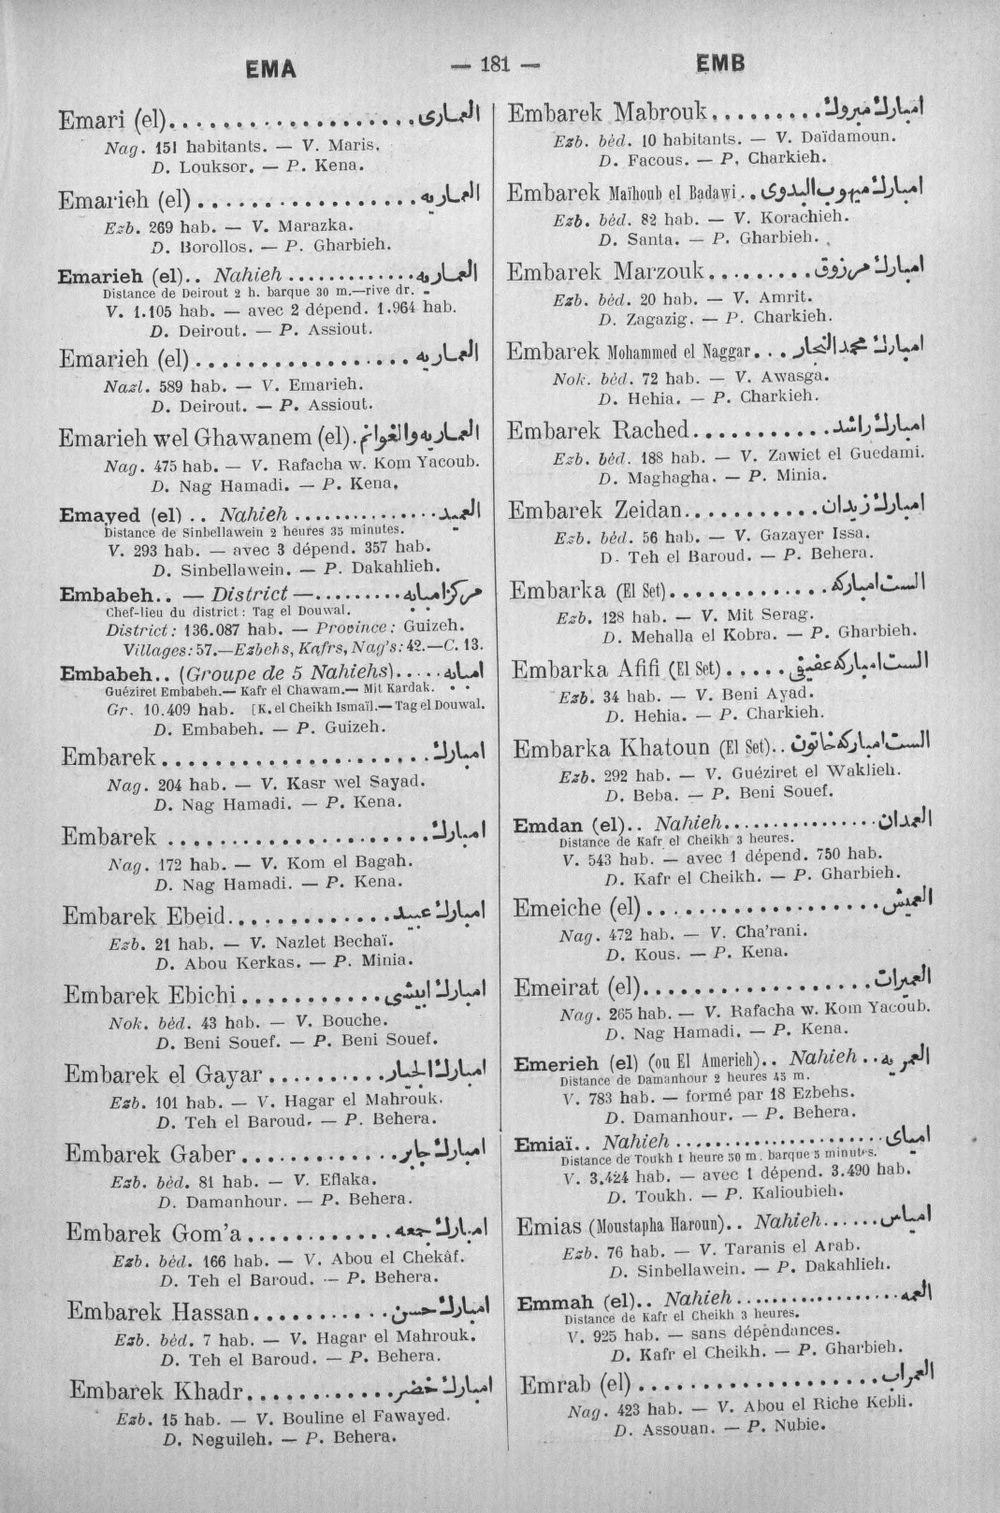 EMA — 181 — EMB
Emari (el). . . . . . . . . . . . . . . . . . . العمارى
Nag. 151 habitants. — V. Maris.
D. Louksor. — P. Kena.
Emarieh (el) . . . . . . . . . . . . . . . . . العماريه
Ezb. 269 hab. — V. Marazka.
D. Borollos. — P. Gharbieh.
Emarieh (el).. Nahieh . . . . . . . . . . . . . العماريه
Distance de Deirout 2 h. barque 30 m.—rive dr.
V. 1.105 hab. — avec 2 dépend. 1.964 hab.
D. Deirout. — P. Assiout.
Emarieh (el) . . . . . . . . . . . . . . . . . العماريه
Nazl. 589 hab. — V. Emarieh.
D. Deirout. — P. Assiout.
Emarieh wel Ghawanem (el). العماريه والغوانم
Nag. 475 hab. — V. Rafacha w. Kom Yacoub.
D. Nag Hamadi. — P. Kena.
Emayed (el) .. Nahieh . . . . . . . . . . . . . . . العميد
Distance de Sinbellawein 2 heures 35 minutes.
V. 293 hab. — avec 3 dépend. 357 hab.
D. Sinbellawein. — P. Dakahlieh.
Embabeh.. — District — . . . . . . . . . مركز امبابه
Chef-lieu du district: Tag el Douwal.
District: 136.087 hab. — Province: Guizeh.
Villages: 57.—Ezbehs, Kafrs, Nag's: 42.—C. 13.
Embabeh.. (Groupe de 5 Nahiehs) . . . . . امبابه
Guéziret Embabeh.— Kafr el Chawam.— Mit Kardak.
Gr. 10.409 hab. [K. el Cheikh Ismaïl.— Tag el Douwal.
D. Embabeh. — P. Guizeh.
Embarek . . . . . . . . . . . . . . . . . . . . . امبارك
Nag. 204 hab. — V. Kasr wel Sayad.
D. Nag Hamadi. — P. Kena.
Embarek . . . . . . . . . . . . . . . . . . . . . امبارك
Nag. 172 hab. — V. Kom el Bagah.
D. Nag Hamadi. — P. Kena.
Embarek Ebeid. . . . . . . . . . . . . امبارك عبيد
Ezb. 21 hab. — V. Nazlet Bechaï.
D. Abou Kerkas. — P. Minia.
Embarek Ebichi . . . . . . . . . . . امبارك ابيشى
Nok. bèd. 43 hab. — V. Bouche.
D. Beni Souef. — P. Beni Souef.
Embarek el Gayar . . . . . . . . . . امبارك الجيار
Ezb. 101 hab. — V. Hagar el Mahrouk.
D. Teh el Baroud. — P. Behera.
Embarek Gaber . . . . . . . . . . . . . امبارك جابر
Ezb. bèd. 81 hab. — V. Eflaka.
D. Damanhour. — P. Behera.
Embarek Gom'a . . . . . . . . . . . . امبارك جمعه
Ezb. bèd. 166 hab. — V. Abou el Chekâf.
D. Teh el Baroud. — P. Behera.
Embarek Hassan . . . . . . . . . . . امبارك حسن
Ezb. bèd. 7 hab. — V. Hagar el Mahrouk.
D. Teh el Baroud. — P. Behera.
Embarek Khadr . . . . . . . . . . . . امبارك خضر
Ezb. 15 hab. — V. Bouline el Fawayed.
D. Neguileh. — P. Behera.
Embarek Mabrouk . . . . . . . . . امبارك مبروك
Ezb. bèd. 10 habitants. — V. Daïdamoun.
D. Facous. — P. Charkieh.
Embarek Maïhoub el Badawi . . امبارك ميهوب البدوى
Ezb. bèd. 82 hab. — V. Korachieh.
D. Santa. — P. Gharbieh.
Embarek Marzouk . . . . . . . . . امبارك مرزوق
Ezb. bèd. 20 hab. — V. Amrit.
D. Zagazig. — P. Charkieh.
Embarek Mohammed el Naggar . . . امبارك محمد النجار
Nok. bèd. 72 hab. — V. Awasga.
D. Hehia. — P. Charkieh.
Embarek Rached . . . . . . . . . . . امبارك راشد
Ezb. bèd. 188 hab. — V. Zawiet el Guedami.
D. Maghagha. — P. Minia.
Embarek Zeidan . . . . . . . . . . . امبارك زيدان
Ezb. bèd. 56 hab. — V. Gazayer Issa.
D. Teh el Baroud. — P. Behera.
Embarka (El Set) . . . . . . . . . . . . . . الست امباركه
Ezb. 128 hab. — V. Mit Serag.
D. Mehalla el Kobra. — P. Gharbieh.
Embarka Afifi (El Set) . . . . . الست امباركه عفيفى
Ezb. 34 hab. — V. Beni Ayad.
D. Hehia. — P. Charkieh.
Embarka Khatoun (El Set) . . الست امباركه خاتون
Ezb. 292 hab. — V. Guéziret el Waklieh.
D. Beba. — P. Beni Souef.
Emdan (el).. Nahieh . . . . . . . . . . . . . . . . العمدان
Distance de Kafr el Cheikh 3 heures.
V. 543 hab. — avec 1 dépend. 750 hab.
D. Kafr el Cheikh. — P. Gharbieh.
Emeiche (el) . . . . . . . . . . . . . . . . . . العميش
Nag. 472 hab. — V. Cha'rani.
D. Kous. — P. Kena.
Emeirat (el) . . . . . . . . . . . . . . . . . . العميرات
Nag. 265 hab. — V. Rafacha w. Kom Yacoub.
D. Nag Hamadi. — P. Kena.
Emerieh (el) (ou El Amerieh).. Nahieh . . العمريه
Distance de Damanhour 2 heures 45 m.
V. 783 hab. — formé par 18 Ezbehs.
D. Damanhour. — P. Behera.
Emiaï.. Nahieh . . . . . . . . . . . . . . . . . . . . . امياى
Distance de Toukh 1 heure 50 m. barque 5 minutes.
V. 3.424 hab. — avec 1 dépend. 3.490 hab.
D. Toukh. — P. Kalioubieh.
Emias (Moustapha Haroun).. Nahieh . . . . . . امياس
Ezb. 76 hab. — V. Taranis el Arab.
D. Sinbellawein. — P. Dakahlieh.
Emmah (el).. Nahieh . . . . . . . . . . . . . . . . . العمه
Distance de Kafr el Cheikh 3 heures.
V. 925 hab. — sans dépendances.
D. Kafr el Cheikh. — P. Gharbieh.
Emrab (el) . . . . . . . . . . . . . . . . . . . العمراب
Nag. 423 hab. — V. Abou el Riche Kebli.
D. Assouan. — P. Nubie.